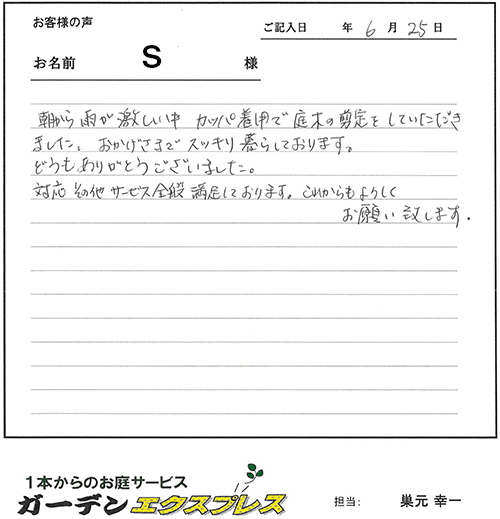 お客様の声
ご記入日 年 6 月 25 日
お名前 S 様
朝から雨が激しい中 カッパ着用で庭木の剪定をしていただき
ました。おかげさまでスッキリ暮らしております。
どうもありがとうございました。
対応その他サービス全般満足しております。これからもよろしく
お願い致します。
1本からのお庭サービス
ガーデンエクスプレス
担当: 巣元 幸一